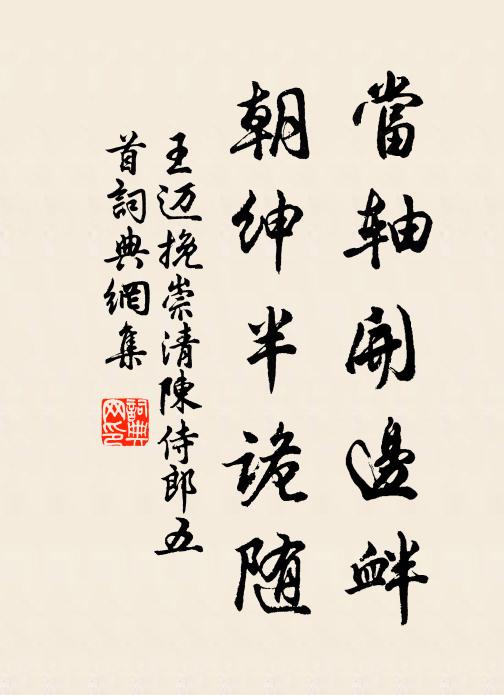 當軸開邊衅
朝紳半詭随
王迈挽崇清陳侍郎五
首詞典網集
詞典網印